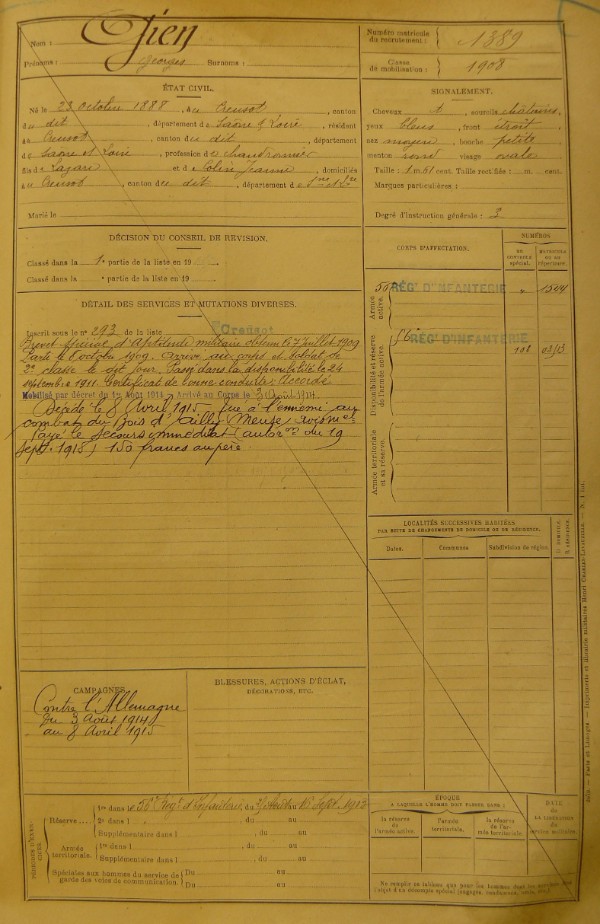 Nom : Gien
Prénoms : Georges Surnoms :
Numéro matricule du recrutement : 1389
Classe de mobilisation : 1908
ÉTAT CIVIL.
Né le 23 octobre 1888, à Creusot, canton
du dit, département de Saône et Loire, résidant
à Creusot, canton du dit, département
de Saône et Loire, profession de chaudronnier
fils de Lazare et de Colin Jeanne, domiciliés
à Creusot, canton du dit, département de
Marié le
SIGNALEMENT.
Cheveux et sourcils châtains,
yeux bleus, front étroit,
nez moyen, bouche petite
menton rond visage ovale
Taille : 1 m. 61 cent. Taille rectifiée : m. cent.
Marques particulières :
Degré d'instruction générale : 2
DÉCISION DU CONSEIL DE RÉVISION.
Classé dans la 1e partie de la liste en 19
Classé dans la partie de la liste en 19
CORPS D'AFFECTATION.
NUMÉROS
Armée active.
56e RÉG' D'INFANTERIE
Disponibilité et réserve de l'armée active.
56e RÉG' D'INFANTERIE
108
Armée territoriale et sa réserve.
DÉTAIL DES SERVICES ET MUTATIONS DIVERSES.
Inscrit sous le n° 293 de la liste Creusot
Brevet d'Aptitude militaire obtenu le 7 Juillet 1909
Parti le 6 octobre 1909. Arrivé au corps et soldat de
2e classe le dit jour. Passé dans la disponibilité le 24
septembre 1911. Certificat de bonne conduite Accordé
Mobilisé par décret du 1er Août 1914 Arrivé au Corps le 3 Août 1914
Décédé le 8 Avril 1915 tué à l'ennemi au
combat du Bois d'Ailly (Meuse)
Payé le secours immédiat du 19
Sept. 1915) 150 francs au père.
LOCALITÉS SUCCESSIVES HABITÉES
PAR SUITE DE CHANGEMENTS DE DOMICILE OU DE RÉSIDENCE.
Dates. Communes Subdivision de région.
CAMPAGNES.
Contre l'Allemagne
du 3 Août 1914
au 8 Avril 1915
BLESSURES, ACTIONS D'ÉCLAT,
DÉCORATIONS, ETC.
PÉRIODES D'EXERCICES.
Réserve.... 1re dans le 56e Rég' d'Infanterie, du au 15 Sept. 1913
2e dans l , du au
Supplémentaire dans l , du au
Armée territoriale. 1re dans l , du au
Supplémentaire dans l , du au
Spéciales aux hommes du service de garde des voies de communication. Du au
Du au
ÉPOQUE
À LAQUELLE L'HOMME DOIT PASSER DANS :
la réserve de l'armée active.
l'armée territoriale.
la réserve de l'armée territoriale.
DATE